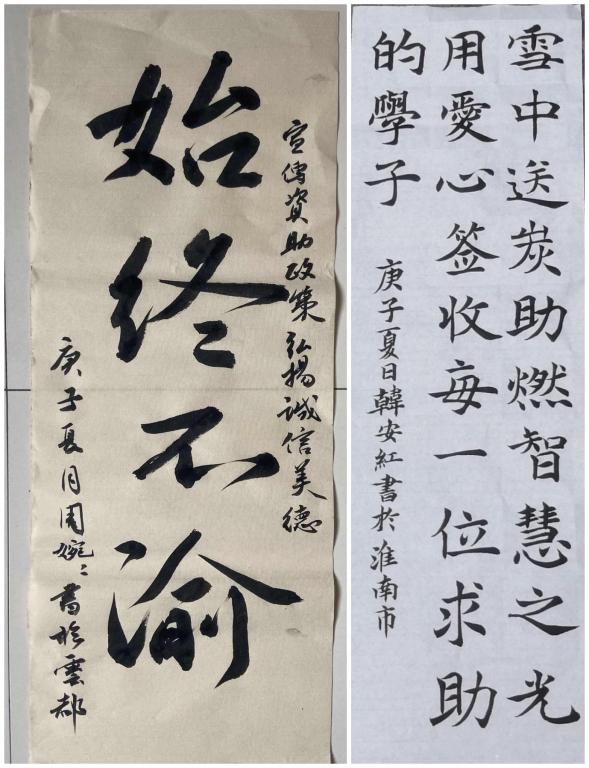 宣傳資助政策 弘揚誠信美德
始終不渝
庚子夏月周婉婉書於雲都
雪中送炭助燃智慧之光
用愛心签收每一位求助
的學子
庚子夏日韓安紅書於淮南市